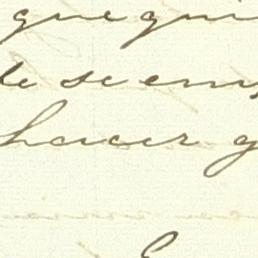 que qui
de se em
hacer q